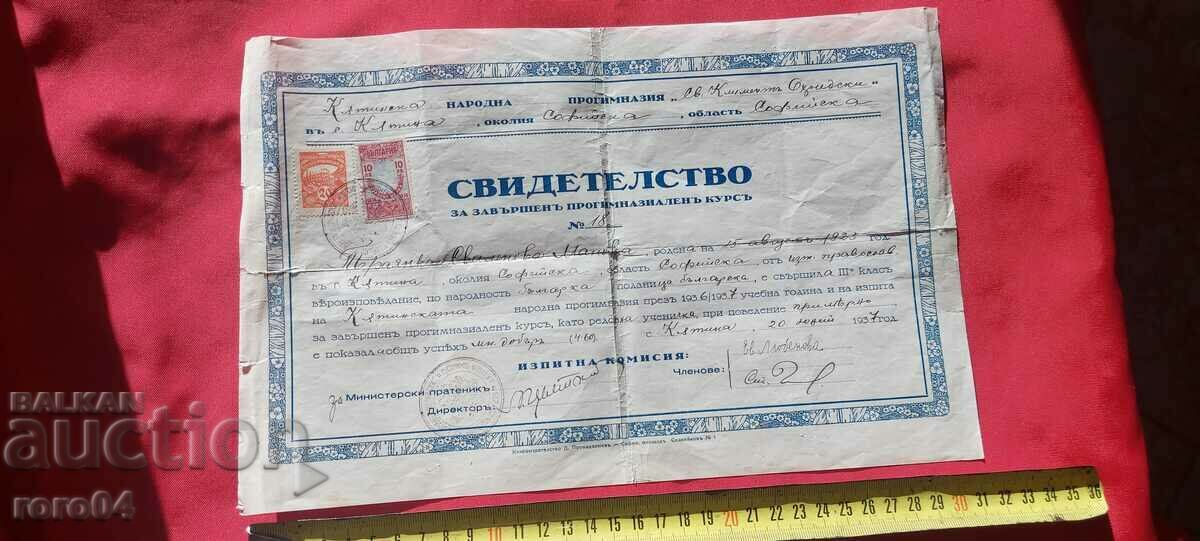 Клтинска НАРОДНА ПРОГИМНАЗИЯ „Св. Климентъ Охридски"
въ с. Клтина, околия Софийска, область Софийска
БЪЛГАРИЯ
10 10
20
СВИДЕТЕЛСТВО
ЗА ЗАВЪРШЕНЪ ПРОГИМНАЗИАЛЕНЪ КУРСЪ
№ 18
Манова, родена на 15 августъ 1923 год.
въ с. Клтина, околия Софийска, область Софийска, отъ изт. православ
вѣроизповѣдание, по народность българка поданица българска, е свършила III класъ
на Клтинската народна прогимназия презъ 1936/1937 учебна година и на изпита
за завършенъ прогимназиаленъ курсъ, като редовна ученичка, при поведение примѣрно
е показала общъ успѣхъ мн. добъръ (4.60). с. Клтина, 20 юний 1937 год.
ИЗПИТНА КОМИСИЯ:
за Министерски пратеникъ:
Директоръ:
Членове:
Ев. Любенова
BALKAN
auction
roro04
10 11 12 13 14 15 16 17 18 19 20 21 22 23 24 25 26 27 28 29 30 31 32 33 34 35 36